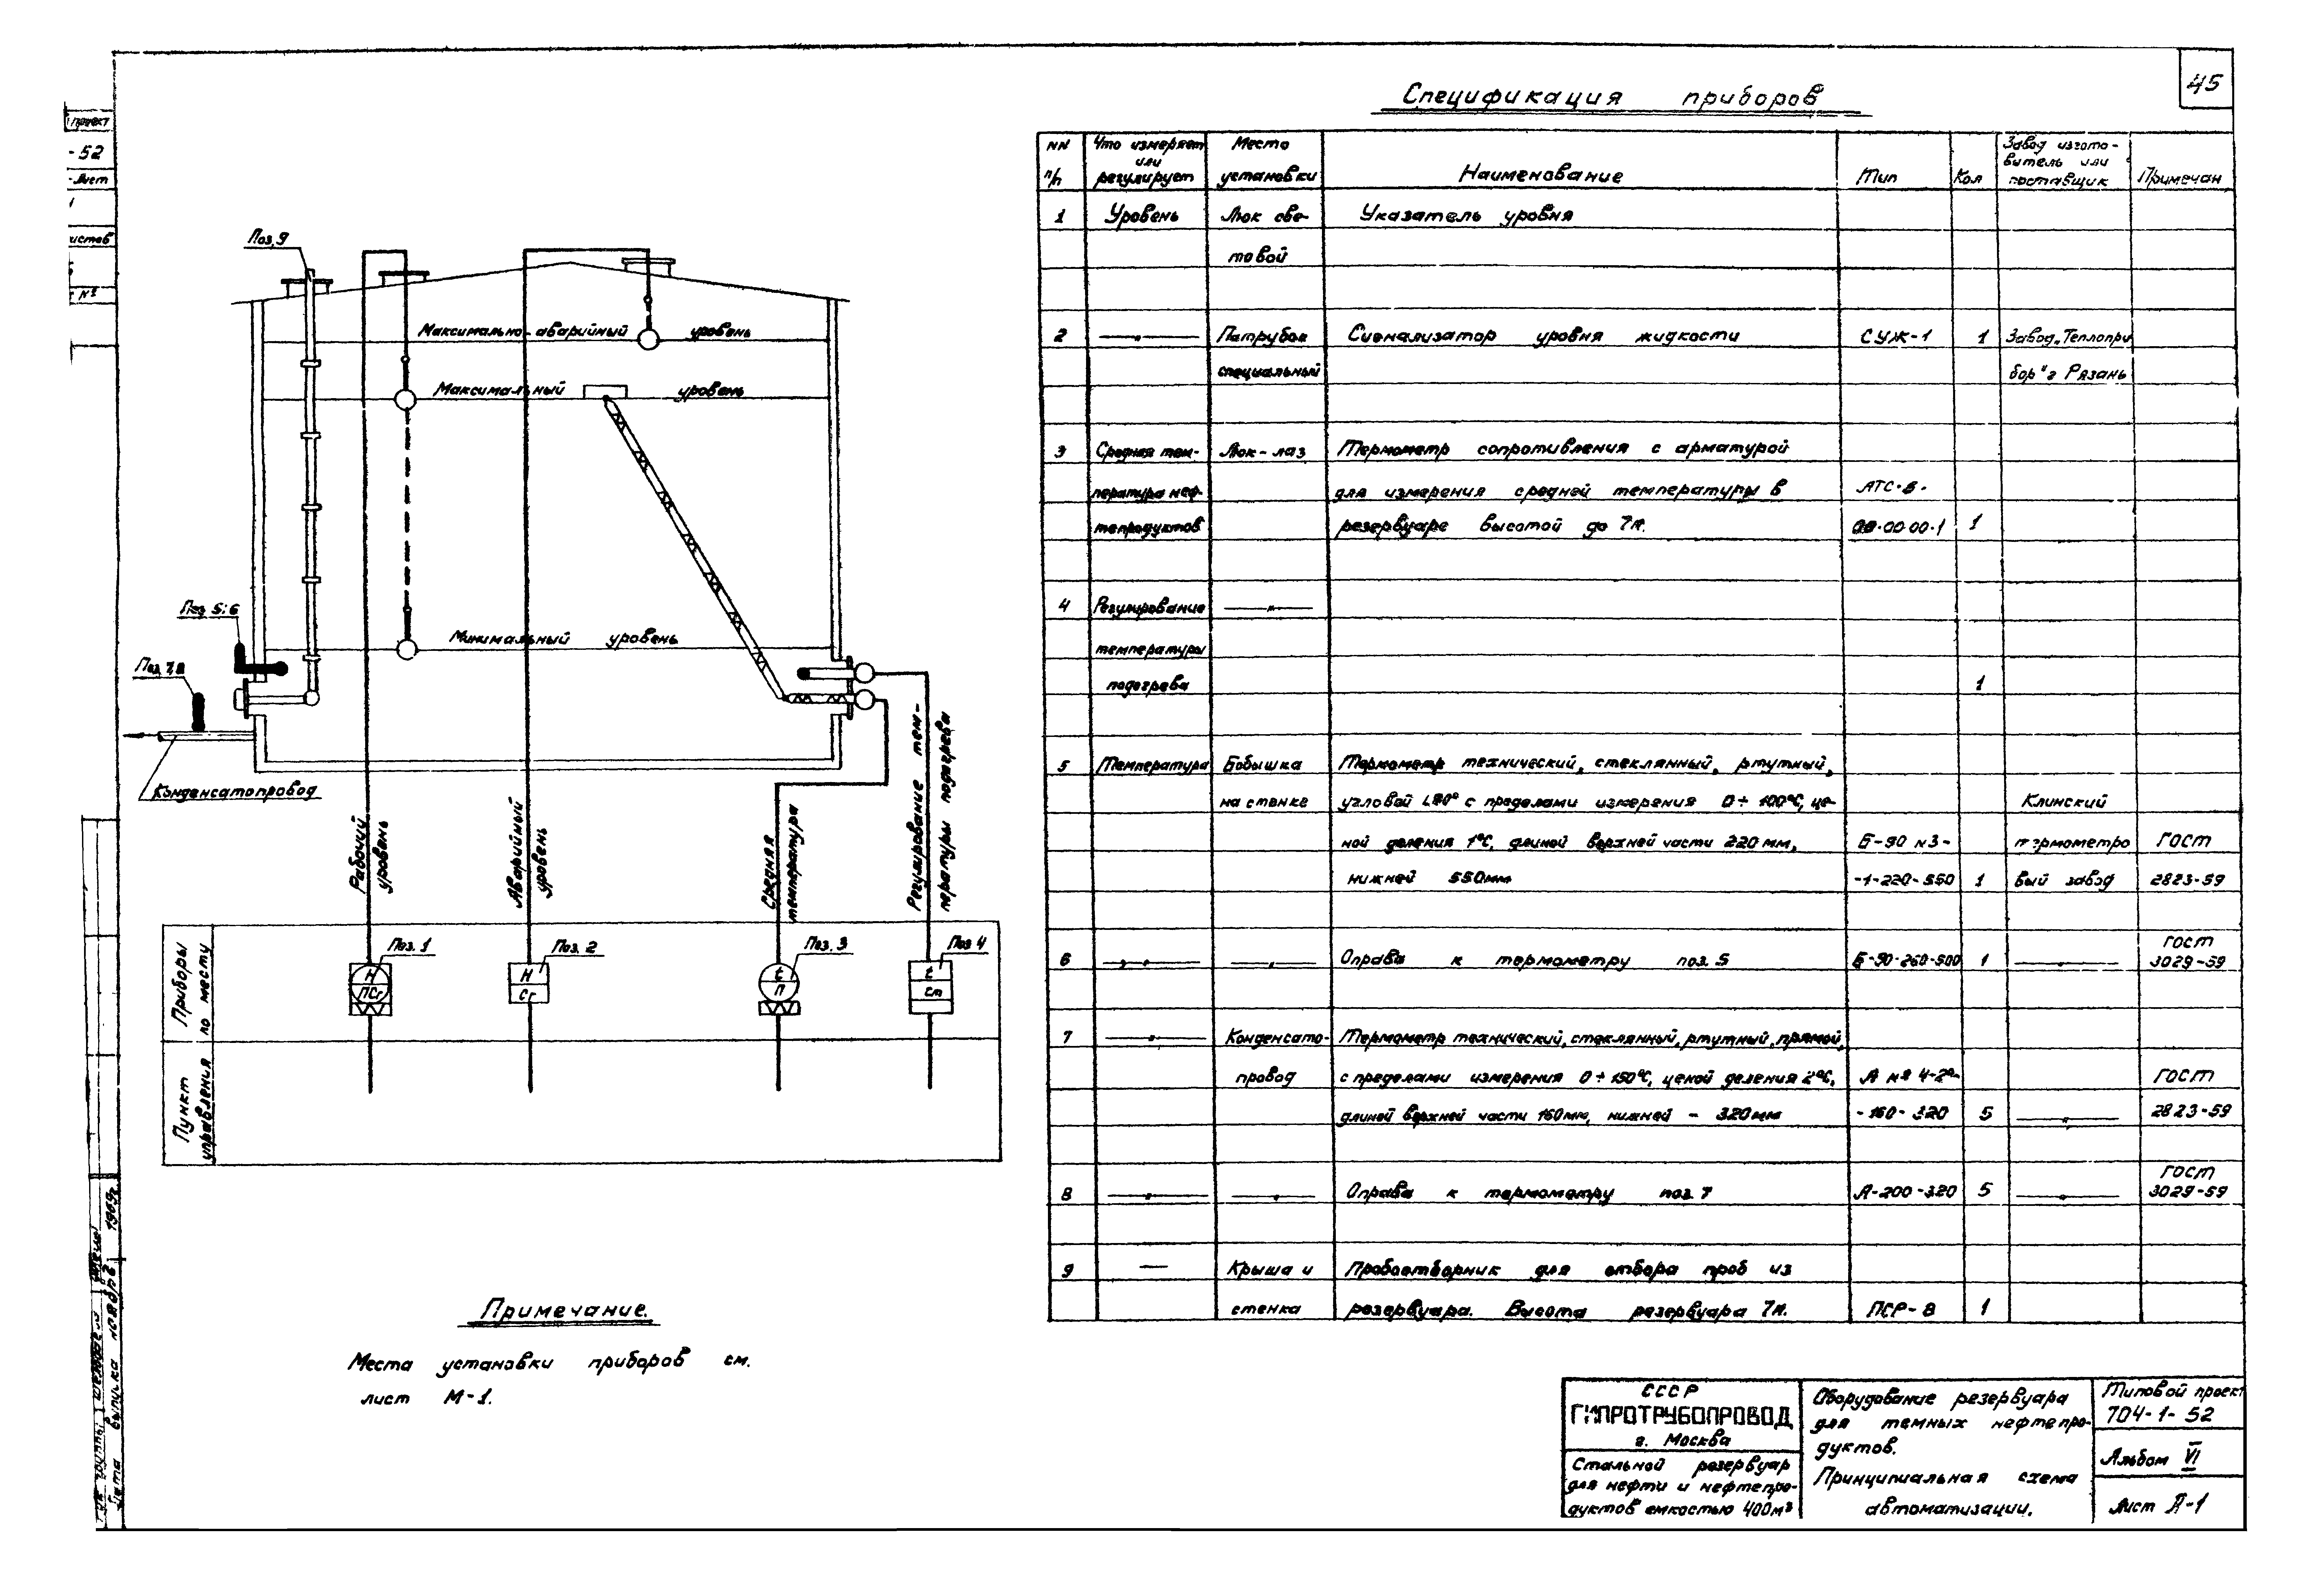 45
проект
- 52
Лист
истов
N°
Спецификация приборов
NN п/п
Что измеряет или регулирует
Место установки
Наименование
Тип
Кол
Завод изгото-
витель или
поставщик
Примечан
1 Уровень Люк све- Указатель уровня
товой
2 —"— Патрубок Сигнализатор уровня жидкости СУЖ-1 1 Завод „Теплопри
специальный бор" г Рязань
3 Средняя тем- Люк-лаз Термометр сопротивления с арматурой
пература неф- для измерения средней температуры в
тепродуктов резервуаре высотой до 7м. 00·00·1 1
4 Регулирование —"—
температуры
подогрева 1
5 Температура Бобышка Термометр технический, стеклянный, ртутный,
на стенке угловой ∠90° с пределами измерения 0÷100°С, це- Клинский
ной деления 1°С, длиной верхней части 220 мм, Б-90 №3- термометро ГОСТ
нижней 550мм -1-220-550 1 вый завод 2823-59
6 —"— —"— Оправа к термометру поз. 5 Б-90-260-500 1 —"— ГОСТ
3029-59
7 —"— Конденсато- Термометр технический, стеклянный, ртутный, прямой,
провод с пределами измерения 0÷150°С, ценой деления 2°С, А №4-2°- ГОСТ
длиной верхней части 160мм, нижней - 320мм -160-320 5 —"— 2823-59
8 —"— —"— Оправа к термометру поз. 7 А-200-320 5 —"— ГОСТ
3029-59
9 — Крыша и Пробоотборник для отбора проб из
стенка резервуара. Высота резервуара 7м. ПСР-8 1
Поз. 9
Максимально-аварийный уровень
Максимальный уровень
Поз. 5; 6
Минимальный уровень
Поз. 7,8
Конденсатопровод
Рабочий
уровень
Аварийный
уровень
Средняя
температура
Регулирование тем-
пературы подогрева
Приборы
по месту
Поз. 1
Н
ПСг
Поз. 2
Н
Сг
Поз. 3
t
П
Поз 4
t
Ст
Пункт
управления
Примечание.
Места установки приборов см.
лист М-1.
Дата выпуска ноябрь 1969г.
СССР
ГИПРОТРУБОПРОВОД
г. Москва
Стальной резервуар
для нефти и нефтепро-
дуктов емкостью 400м³
Оборудование резервуара
для темных нефтепро-
дуктов.
Принципиальная схема
автоматизации.
Типовой проект
704-1-52
Альбом VI
Лист А-1